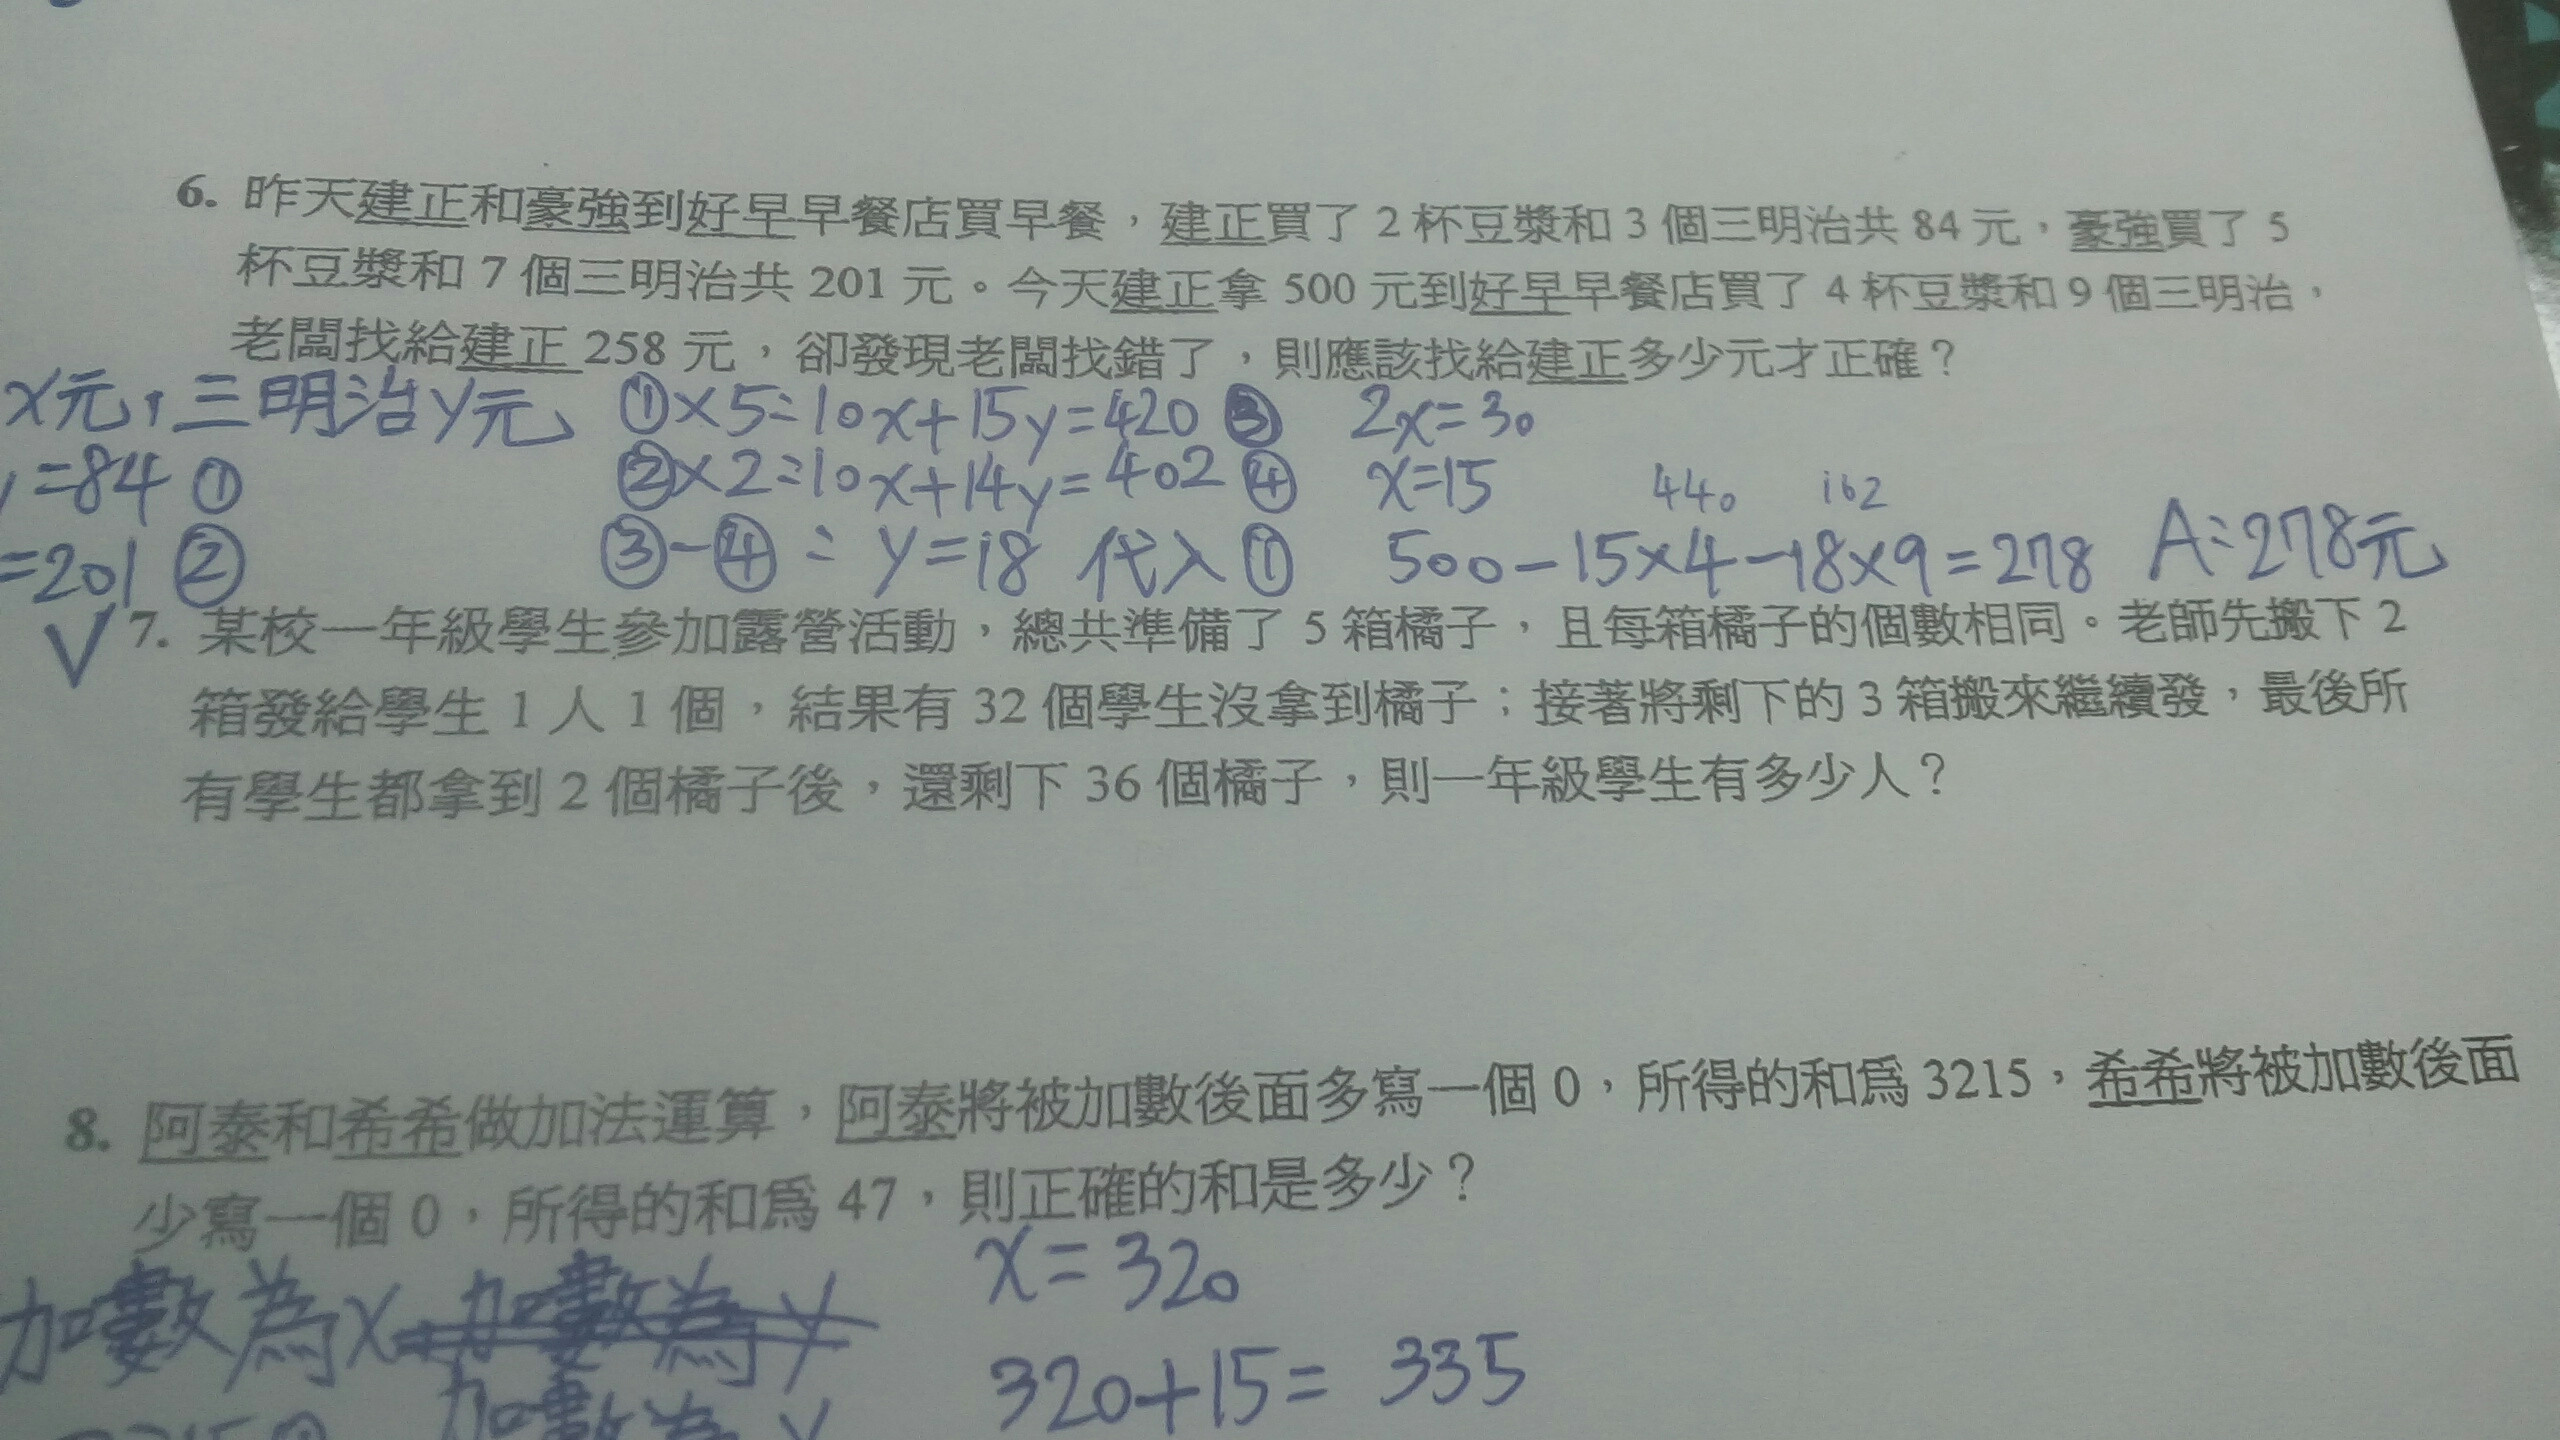 6. 昨天建正和豪強到好早早餐店買早餐，建正買了 2 杯豆漿和 3 個三明治共 84 元，豪強買了 5
杯豆漿和 7 個三明治共 201 元。今天建正拿 500 元到好早早餐店買了 4 杯豆漿和 9 個三明治，
老闆找給建正 258 元，卻發現老闆找錯了，則應該找給建正多少元才正確？
x元，三明治y元 ①×5=10x+15y=420 ③ 2x=30
=84 ① ②×2=10x+14y=402 ④ x=15
440 162
=201 ② ③-④= y=18 代入① 500-15×4-18×9=278 A:278元
✓ 7. 某校一年級學生參加露營活動，總共準備了 5 箱橘子，且每箱橘子的個數相同。老師先搬下 2
箱發給學生 1 人 1 個，結果有 32 個學生沒拿到橘子；接著將剩下的 3 箱搬來繼續發，最後所
有學生都拿到 2 個橘子後，還剩下 36 個橘子，則一年級學生有多少人？
8. 阿泰和希希做加法運算，阿泰將被加數後面多寫一個 0，所得的和為 3215，希希將被加數後面
少寫一個 0，所得的和為 47，則正確的和是多少？
加數為x 加數為y x=320
加數為y 320+15= 335